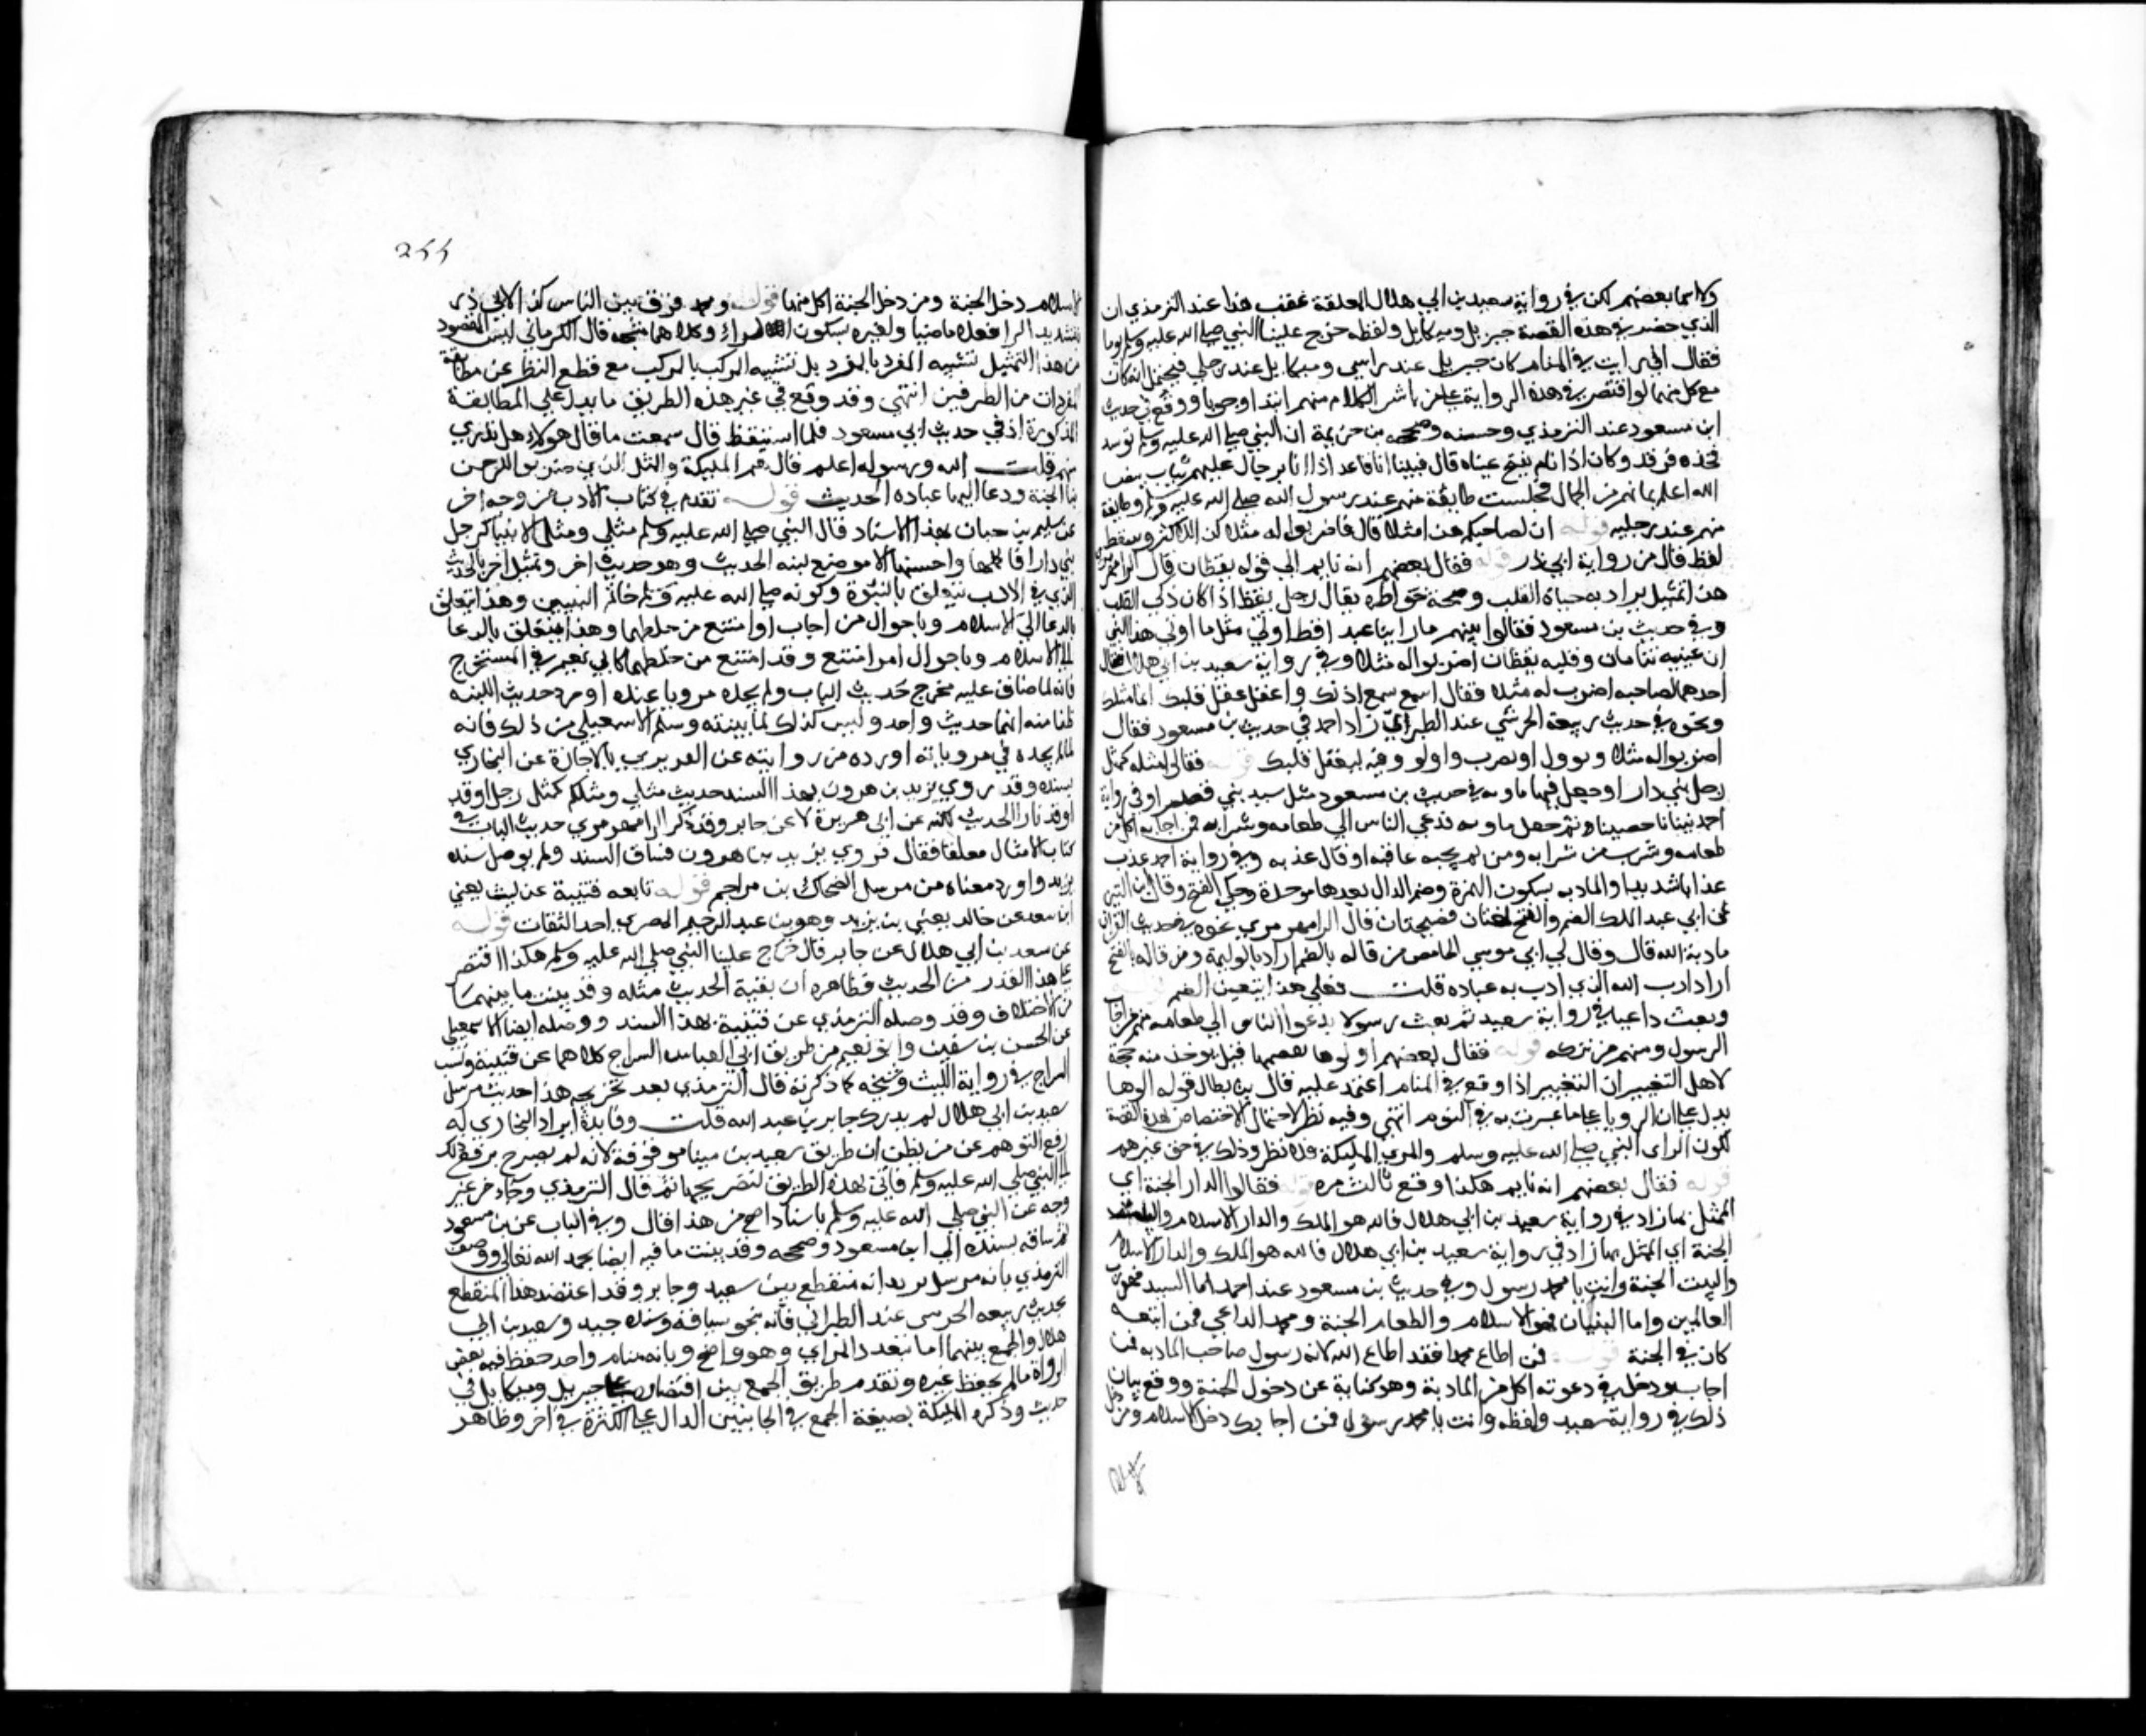 ولا اسما بعضهم لكن في رواية سعيد بن ابي هلال المعلقة عقب هذا عند الترمذي ان
الذي حضر في هذه القصة جبريل وميكايل ولفظه خرج علينا النبي صلى الله عليه وسلم يوما
فقال اني رايت في المنام كان جبريل عند راسي وميكايل عند رجلي فيحتمل انه كان
مع كل منهما لو اقتصر في هذه الرواية على من باشر الكلام منهم ابتدا وجوابا ووقع في حديث
ابن مسعود عند الترمذي وحسنه وصححه بن خزيمة ان النبي صلى الله عليه وسلم توسد
فخذه فرقد وكان اذا نام نفخ عيناه قال فبينا انا قاعد اذا انا برجال عليهم ثياب بيض
الله اعلم بما بهم من الجمال فجلست طايفة منهم عند رسول الله صلى الله عليه وسلم وطايفة
منهم عند رجليه قوله ان لصاحبكم هذا مثلا قال فاضربوا له مثلا كذا للاكثر وسقط
لفظ قال من رواية ابي ذر قوله فقال بعضهم انه نايم الى قوله يقظان قال الرامهرمزي
هذا تمثيل يراد به حياة القلب وصحة خواطره يقال رجل يقظ اذا كان ذكي القلب
وفي حديث بن مسعود فقالوا بينهم ما راينا عبدا قط اوتي مثل ما اوتي هذا النبي
ان عينيه تنامان وقلبه يقظان اضربوا له مثلا وفي رواية سعيد بن ابي هلال فقال
احدهما لصاحبه اضرب له مثلا فقال اسمع سمع اذنك واعقل عقل قلبك انما مثلك
ونحوه في حديث ربيعة الجرشي عند الطبراني زاد احمد في حديث بن مسعود فقال
اضربوا له مثلا ونوول او نضرب واولو وفيه ليعقل قلبك قوله فقالوا مثله كمثل
رجل بنى دارا وجعل فيها مادبه في حديث بن مسعود مثل سيد بنى قصرا وفي رواية
احمد بنيانا حصينا ثم جعل مادبه فدعى الناس الى طعامه وشرابه فمن اجابه اكل من
طعامه وشرب من شرابه ومن لم يجبه عاقبه او قال عذبه وفي رواية احمد عذب
عذابا شديدا والمادبه بسكون الهمزة وضم الدال بعدها موحدة وحكي الفتح وقال ابن التين
عن ابي عبد الملك الضم والفتح لغتان فصيحتان قال الرامهرمزي نحوه في حديث القران
مادبة الله قال وقال لي ابي موسى الحامض من قاله بالضم اراد بالوليمة ومن قاله بالفتح
اراد ادب الله الذي ادب به عباده قلت فعلى هذا يتعين الضم قوله
وبعث داعيا في رواية سعيد ثم بعث رسولا يدعوا الناس الى طعامه فمنهم من اجاب
الرسول ومنهم من تركه قوله فقال بعضهم اولوها يفقهها قيل يوخذ منه حجة
لاهل التعبير ان التعبير اذا وقع في المنام اعتمد عليه قال بن بطال قوله اولوها
يدل على ان الرويا على ما عبرت به في النوم انتهى وفيه نظر لاحتمال الاختصاص بهذه القصة
لكون الراى النبي صلى الله عليه وسلم والمري المليكة فلا نظر وذلك في حق غيرهم
قوله فقال بعضهم انه نايم هكذا وقع ثالث مره قوله فقالوا الدار الجنة اي
الممثل بها زاد في رواية سعيد بن ابي هلال فالله هو الملك والدار الاسلام والبيت
الجنة اي الممثل بها زاد في رواية سعيد بن ابي هلال فالله هو الملك والدار الاسلام
والبيت الجنة وانت يا محمد رسول وفي حديث بن مسعود عند احمد اما السيد فهو رب
العالمين واما البنيان فهو الاسلام والطعام الجنة ومحمد الداعي فمن اتبعه
كان في الجنة قوله فمن اطاع محمدا فقد اطاع الله لانه رسول صاحب المادبه فمن
اجابه ودخل في دعوته اكل من المادبة وهو كناية عن دخول الجنة ووقع بيان
ذلك في رواية سعيد ولفظه وانت يا محمد رسول فمن اجابك دخل الاسلام ومن دخل
٢٥٥
الاسلام دخل الجنة ومن دخل الجنة اكل منها قوله ومحمد فرق بين الناس كذا لابي ذر
بتشديد الرا فعلا ماضيا ولغيره بسكون الراء وكلاهما متجه قال الكرماني ليس المقصود
من هذا التمثيل تشبيه المفرد بالمفرد بل تشبيه المركب بالمركب مع قطع النظر عن مطابقة
المفردات من الطرفين انتهى وقد وقع في غير هذه الطريق ما يدل على المطابقة
المذكورة اذ في حديث ابي مسعود فلما استيقظ قال سمعت ما قال هولاء هل تدري
من هم قلت الله ورسوله اعلم قال هم المليكة والمثل الذي ضربوا الرحمن
بنا الجنة ودعا اليها عباده الحديث قوله تقدم في كتاب الادب من وجه اخر
عن سليم بن حبان بهذا الاسناد قال النبي صلى الله عليه وسلم مثلي ومثل الانبيا كرجل
بنى دارا فاكملها واحسنها الا موضع لبنه الحديث وهو حديث اخر وتمثيل اخر فالحديث
الذي في الادب يتعلق بالنبوة وكونه صلى الله عليه وسلم خاتم النبيين وهذا يتعلق
بالدعا الى الاسلام وباحوال من اجاب او امتنع من خلطهما وهذا يتعلق بالدعا
الى الاسلام وباحوال امر امتنع وقد امتنع من خلطهما كابي نعيم في المستخرج
فانه لما ضاق عليه مخرج حديث الباب ولم يجده مرويا عنده اورد حديث اللبنه
ظنا منه انهما حديث واحد وليس كذلك لما بينته وسلم الاسمعيلي من ذلك فانه
لما لم يجده في مروياته اورده من روايته عن الفربري بالاجازة عن البخاري
بسنده وقد روى يزيد بن هرون بهذا السند حديث مثلي ومثلكم كمثل رجل اوقد
اوقد نارا الحديث لكنه عن ابي هريرة لا عن جابر وقد ذكر الرامهرمزي حديث الباب في
كتاب الامثال معلقا فقال فروى يزيد بن هرون فساق السند ولم يوصل سنده
بيزيد واورد معناه من مرسل الضحاك بن مزاحم قوله تابعه قتيبة عن ليث يعني
ابن سعد عن خالد يعني بن يزيد وهو بن عبد الرحيم المصري احد الثقات قوله
عن سعيد بن ابي هلال عن جابر قال خرج علينا النبي صلى الله عليه وسلم هكذا اقتصر
على هذا القدر من الحديث فظاهره ان بقية الحديث مثله وقد بينت ما بينهما
من الاختلاف وقد وصله الترمذي عن قتيبة بهذا السند ووصله ايضا الاسمعيلي
عن الحسن بن سفين وابو نعيم من طريق ابي العباس السراج كلاهما عن قتيبة ونسب
السراج في رواية الليث وشيخه كما ذكرته قال الترمذي بعد تخريجه هذا حديث مرسل
سعيد بن ابي هلال لم يدرك جابر بن عبد الله قلت وفايدة ايراد البخاري له
رفع التوهم عن من يظن ان طريق سعيد بن مينا موقوفة لانه لم يصرح برفع ذلك
الى النبي صلى الله عليه وسلم فاتى بهذه الطريق لتصريحها ثم قال الترمذي وجاء من غير
وجه عن النبي صلى الله عليه وسلم باسناد اصح من هذا قال وفي الباب عن بن مسعود
ثم ساقه بسنده الى ابن مسعود وصححه وقد بينت ما فيه ايضا بحمد الله تعالى ووصف
الترمذي بانه مرسل يريد انه منقطع بين سعيد وجابر وقد اعتضد هذا المنقطع
بحديث ربيعه الجرشي عند الطبراني فانه بنحو سياقه وسنده جيد وسعيد بن ابي
هلال والجمع بينهما اما بتعدد المراي وهو واضح وبانه منام واحد حفظ فيه بعض
الرواة ما لم يحفظ غيره وتقدم طريق الجمع بين اقتصاره على جبريل وميكايل في
حديث وذكره المليكة بصيغة الجمع في الجانبين الدال على الكثرة في اخر وظاهر